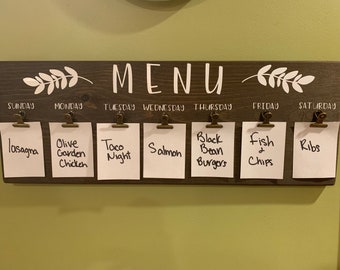 MENU
SUNDAY MONDAY TUESDAY WEDNESDAY THURSDAY FRIDAY SATURDAY
lasagna
Olive
Garden
Chicken
Taco
Night
Salmon
Black
Bean
Burgers
Fish
+
Chips
Ribs